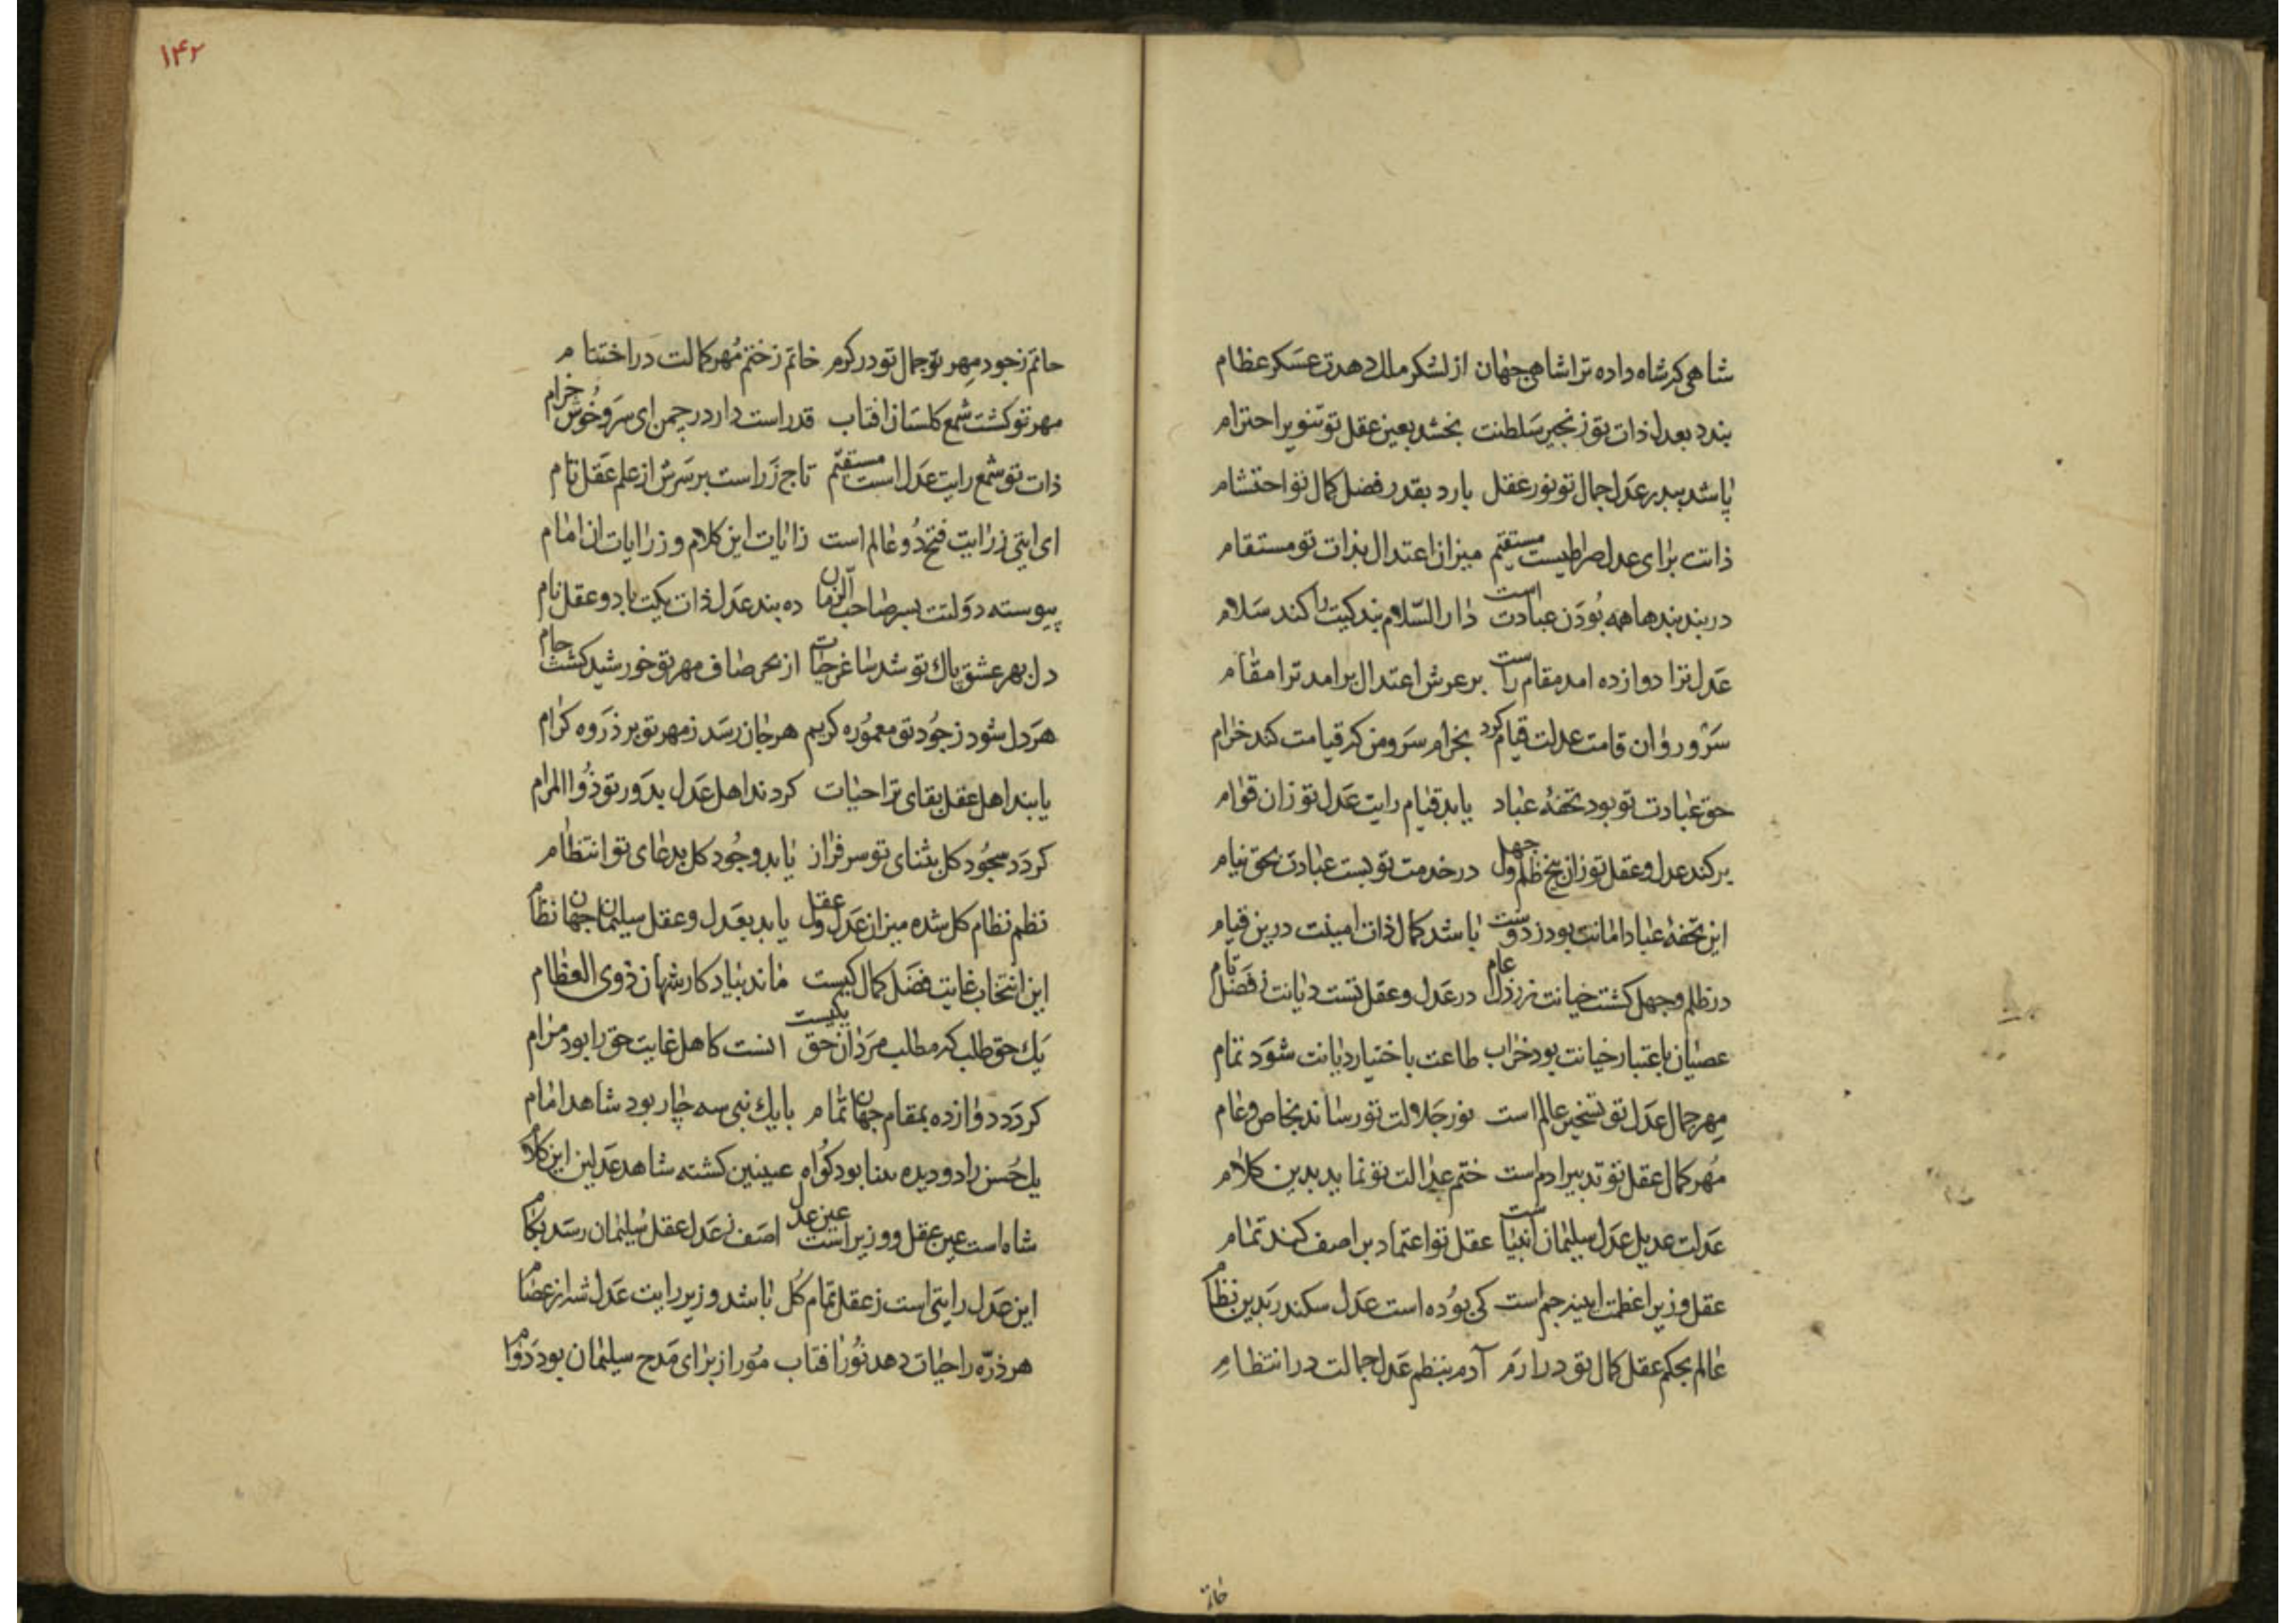 شاهی که شاه داده ترا شاهی جهان از لشکر ملک دهدت عسکر عظام
بندد بعدل ذات تو زنجیر سلطنت بخشد بعین عقل تو تنویر احترام
پاشد ببدر عدل جمال تو نور عقل بارد بقدر فضل کمال تو احتشام
ذاتت برای عدل صراطیست مستقیم میزان اعتدال بذات تو مستقام
در بند بندها همه بودن عبادت است دار السلام بندکیت را کند سلام
عدل ترا دوازده امد مقام راست بر عرش اعتدال برامد ترا مقام
سرو روان قامت عدلت قیام کرد بخرام سرو من که قیامت کند خرام
حق عبادت تو بود تحفهٔ عباد یابد قیام رایت عدل تو زان قوام
برکند عدل و عقل تو زان بیخ ظلم و جهل در خدمت تو بست عبادت بحق نیام
این تحفهٔ عباد امانت بود ز دوست باشد کمال ذات امینت درین قیام
در ظلم و جهل کشت خیانت ز رذل عام در عدل و عقل تست دیانت ز فضل تام
عصیان باعتبار خیانت بود خراب طاعت باختیار دیانت شود تمام
مهر جمال عدل تو تسخیر عالم است نور جلالت تو رساند بخاص و عام
مهر کمال عقل تو تدبیر ادم است ختم عدالت تو نماید بدین کلام
عدلت عدیل عدل سلیمان انبیاست عقل تو اعتماد بر اصف کند تمام
عقل وزیر اعظمت ایینه جم است کی بوده است عدل سکندر بدین نظام
عالم بحکم عقل کمال تو در ارم آدم بنظم عدل جمالت در انتظام
خاتم
۱۴۲
حاتم ز جود مهر تو جمال تو در کرم خاتم ز ختم مهر کمالت در اختتام
مهر تو کشت شمع کلستان افتاب قد راست دار در چمن ای سرو خوش خرام
ذات تو شمع رایت عدل است مستقیم تاج زر است بر سرش از علم عقل تام
ای ایتی ز رایت فتح دو عالم است ز ایات این کلام و ز رایات ان امام
پیوسته دولتت بسر صاحب الزمان ده بند عدل ذات یکیت باد و عقل نام
دل بهر عشق پاک تو شد ساغر حیات از بحر صاف مهر تو خورشید کشت جام
هر دل شود ز جود تو معموره کریم هر جان رسد ز مهر تو بر ذروه کرام
یابند اهل عقل بقای ترا حیات کردند اهل عدل بدور تو ذوا المرام
کردد سجود کل بثنای تو سرفراز یابد وجود کل بدعای تو انتظام
نظم نظام کل شده میزان عدل و عقل یابد بعدل و عقل سلیمان جهان نظام
این انتخاب غایت فضل کمال کیست ماند بیادکار شهان ذوی العظام
یک حق طلب که مطلب مردان حق یکیست انست کاهل غایت حق را بود مرام
کردد دوازده بمقام جهان تمام با یک نبی سه چار بود شاهد امام
یک حسن را دو دیده بینا بود کواه عینین کشته شاهد عدلین این کلام
شاه است عین عقل و وزیر است عین عدل اصف ز عدل عقل سلیمان رسد بکام
این عدل رایتی است ز عقل تمام کل باشد وزیر رایت عدل شه از عصام
هر ذره را حیات دهد نور افتاب مور از برای مدح سلیمان بود دوام